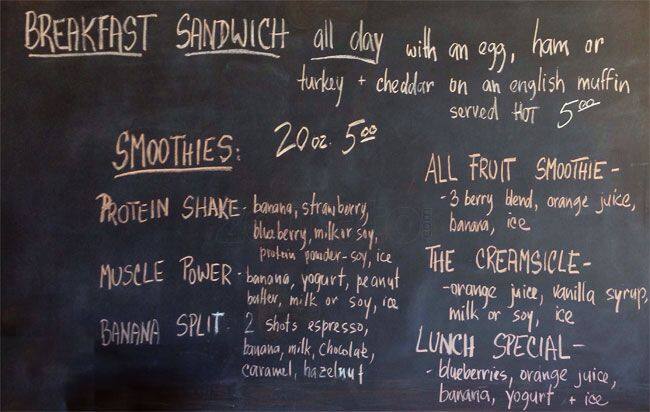 BREAKFAST SANDWICH all day with an egg, ham or
turkey + cheddar on an english muffin
served HOT 5.00
SMOOTHIES: 20 oz. 5.00
PROTEIN SHAKE - banana, strawberry,
blueberry, milk or soy,
protein powder - soy, ice
MUSCLE POWER - banana, yogurt, peanut
butter, milk or soy, ice
BANANA SPLIT - 2 shots espresso,
banana, milk, chocolate,
caramel, hazelnut
ALL FRUIT SMOOTHIE -
- 3 berry blend, orange juice,
banana, ice
THE CREAMSICLE -
- orange juice, vanilla syrup,
milk or soy, ice
LUNCH SPECIAL -
- blueberries, orange juice,
banana, yogurt + ice